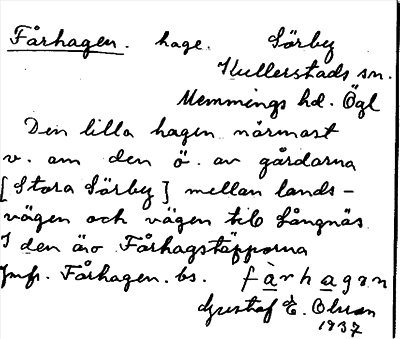 Fårhagen. hage. Sörby
Kullerstads sn.
Memmings hd. Ögl
Den lilla hagen närmast
v. om den ö. av gårdarna
[Stora Sörby] mellan lands-
vägen och vägen till Långnäs.
I den äro Fårhagstäpporna
Jmfr. Fårhagen. bs. fàrhagan
Gustaf E. Olsson
1937